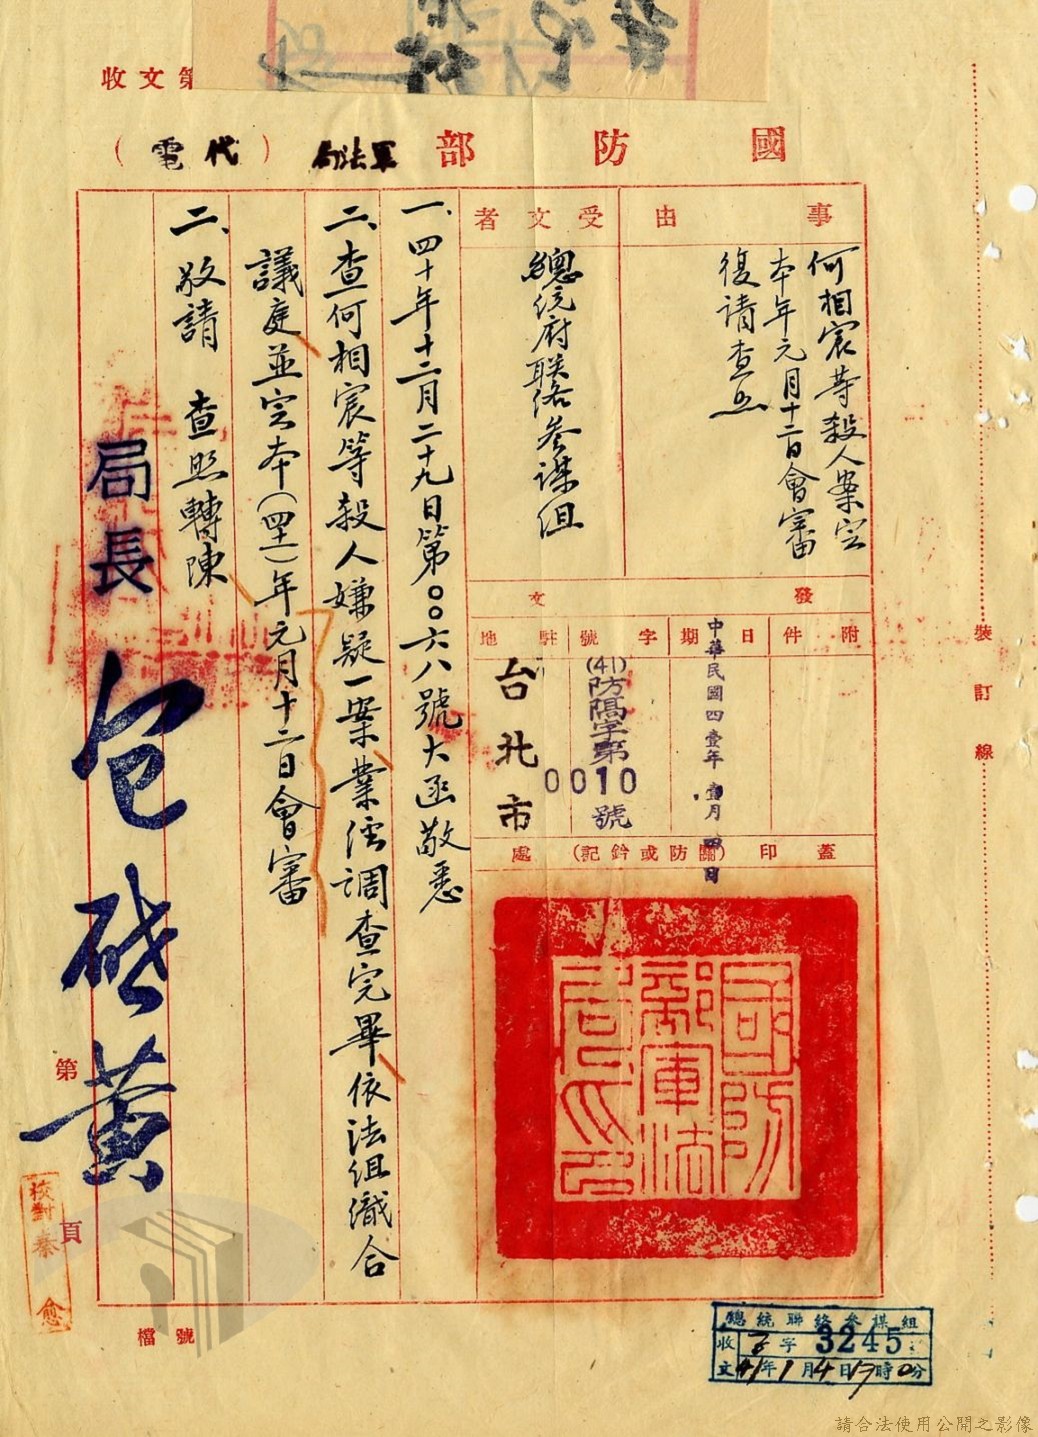 收文第
國防部軍法局(代電)
事由
何相宸等殺人案定
本年元月十二日會審
復請查照
受文者
總統府联络参謀组
發文
附件
日期
中華民國四壹年壹月四日
字號
(41)防隔字第
0010
號
駐地
台北市
蓋印(關防或鈐記)處
國防部軍法局印
一、四十年十二月二十九日第〇〇六八號大函敬悉
二、查何相宸等殺人嫌疑一案業經調查完畢依法組織合
議庭並定本(四十一)年元月十二日會審
二、敬請 查照轉陳
局長 包啟黃
第
頁
校對秦
檔號
裝訂線
總統聯絡參謀組
收 字 3245
文 41年1月4日17時0分
請合法使用公開之影像